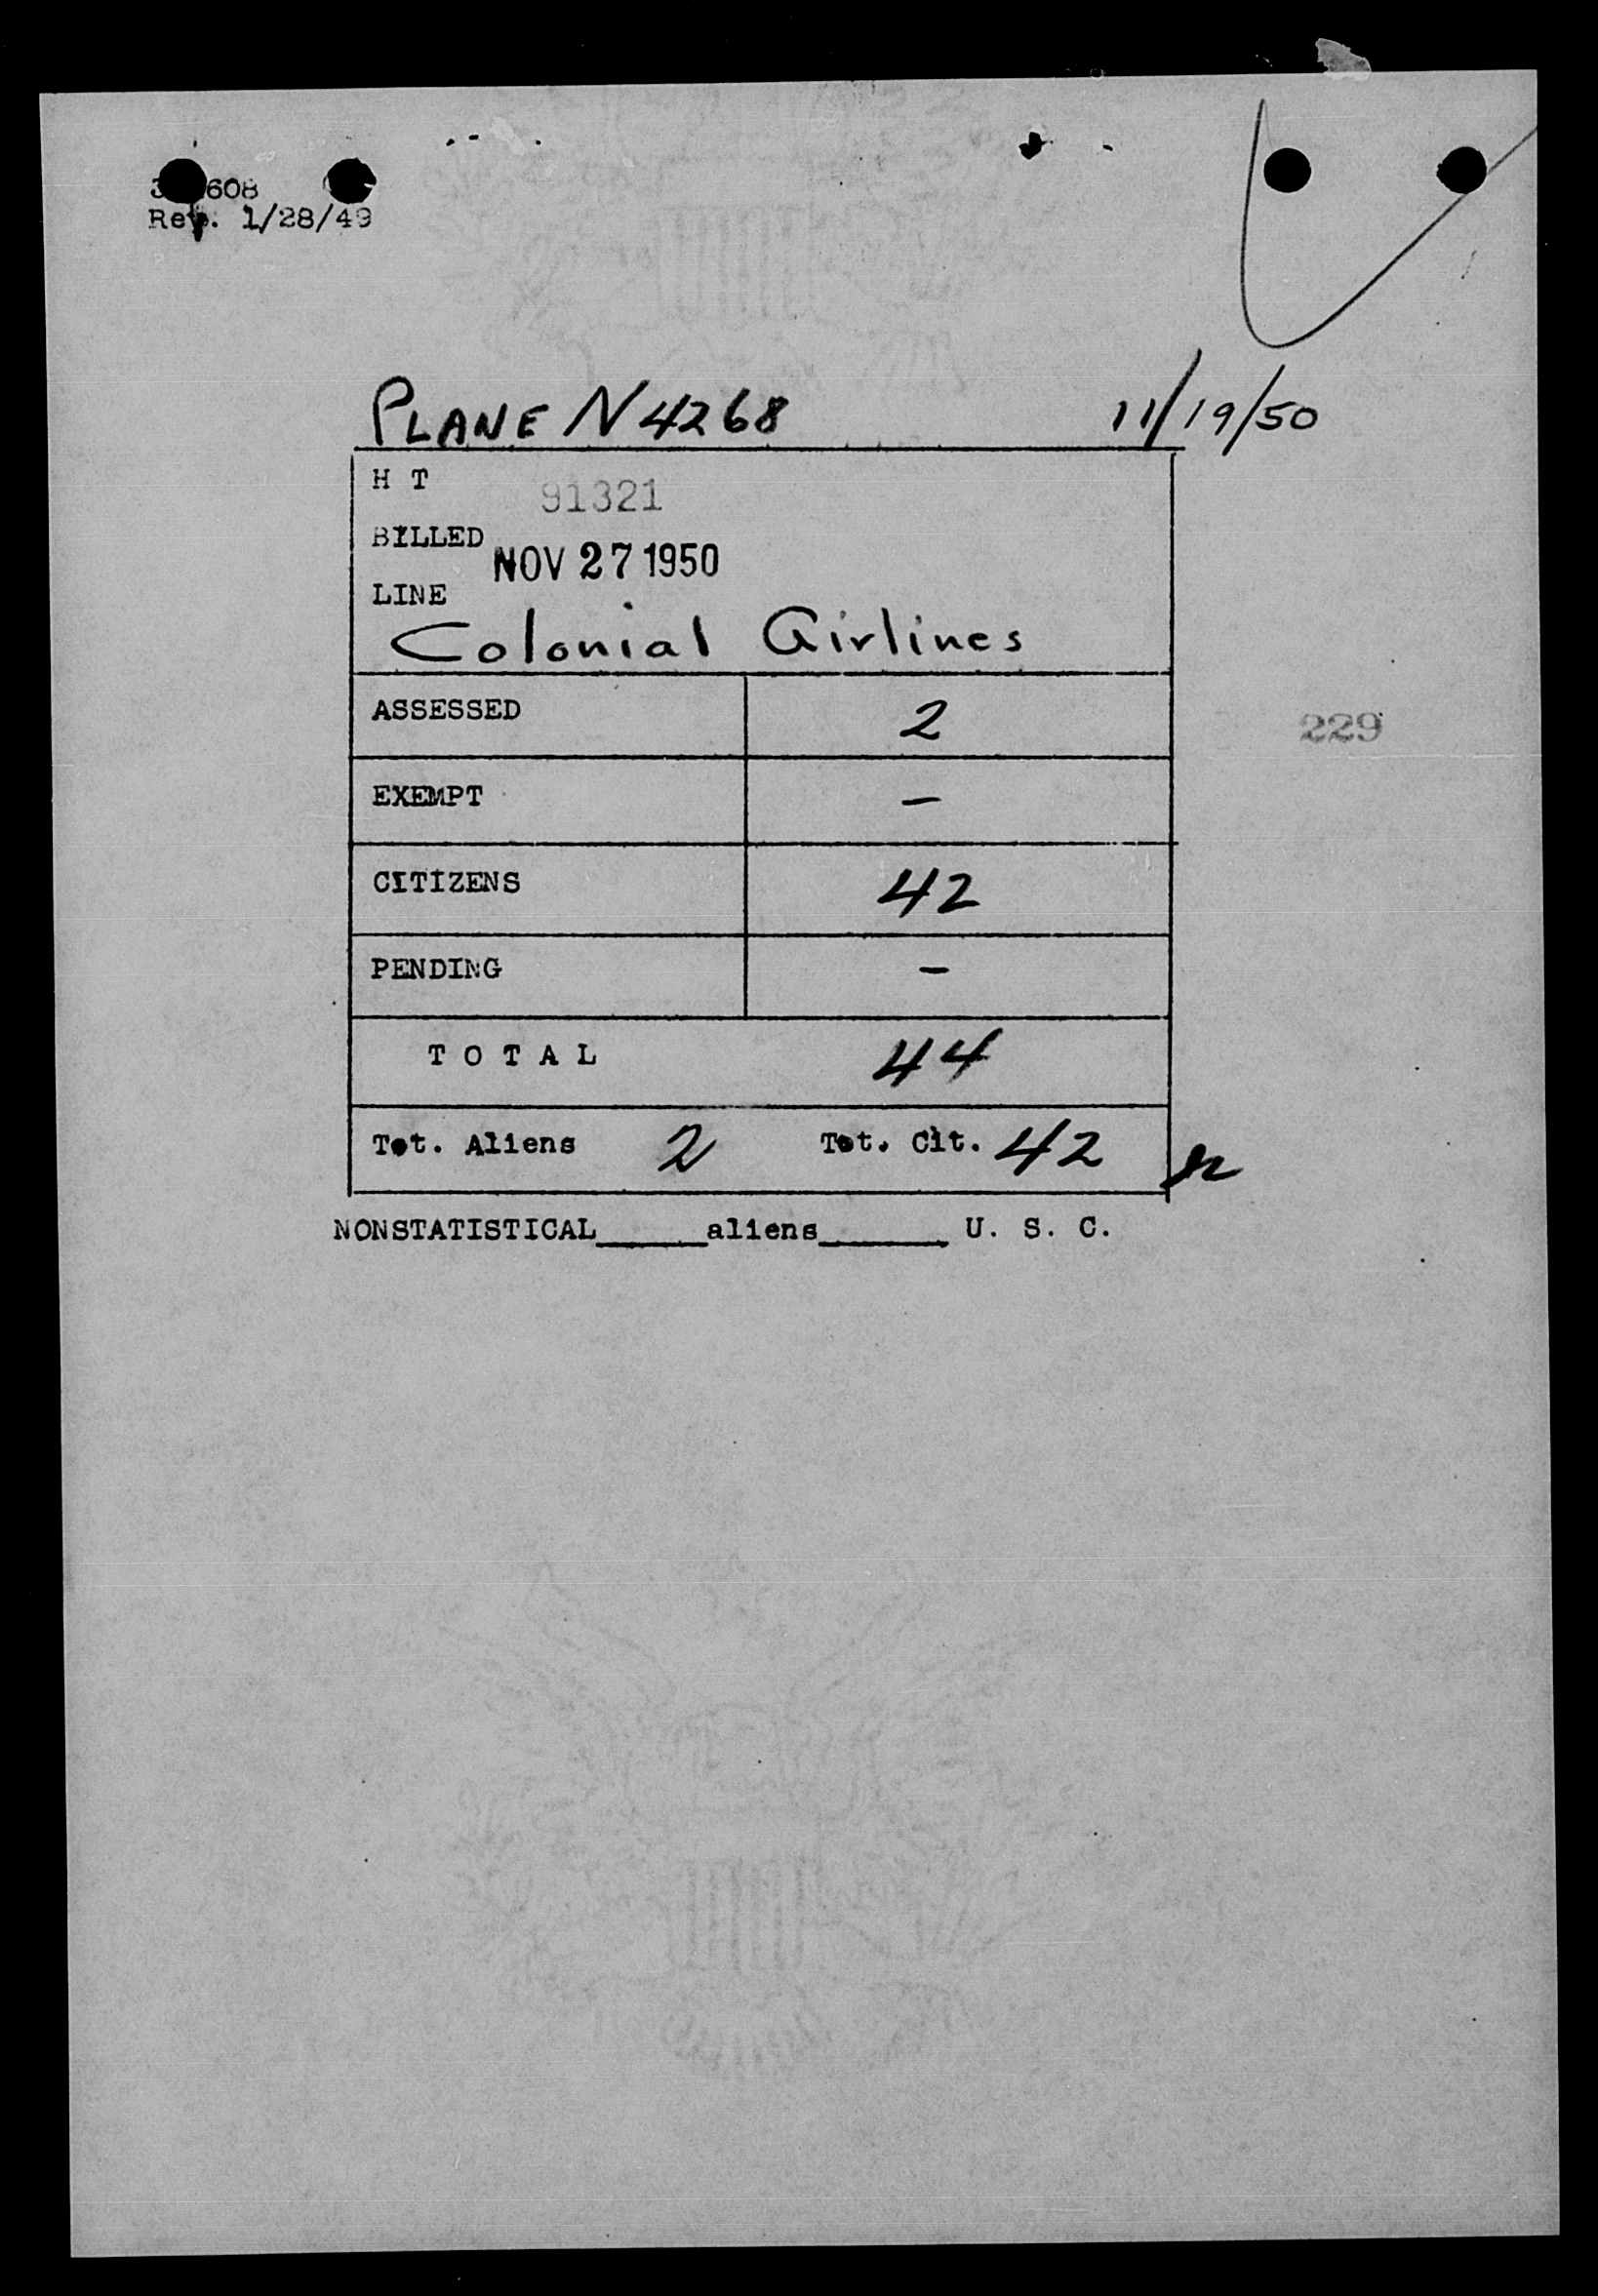 608
Rev. 1/28/49
PLANE N4268 11/19/50
H T 91321
BILLED NOV 27 1950
LINE
Colonial Airlines
ASSESSED 2
229
EXEMPT —
CITIZENS 42
PENDING —
T O T A L 44
Tot. Aliens 2 Tot. Cit. 42
NONSTATISTICAL______aliens_______ U. S. C.